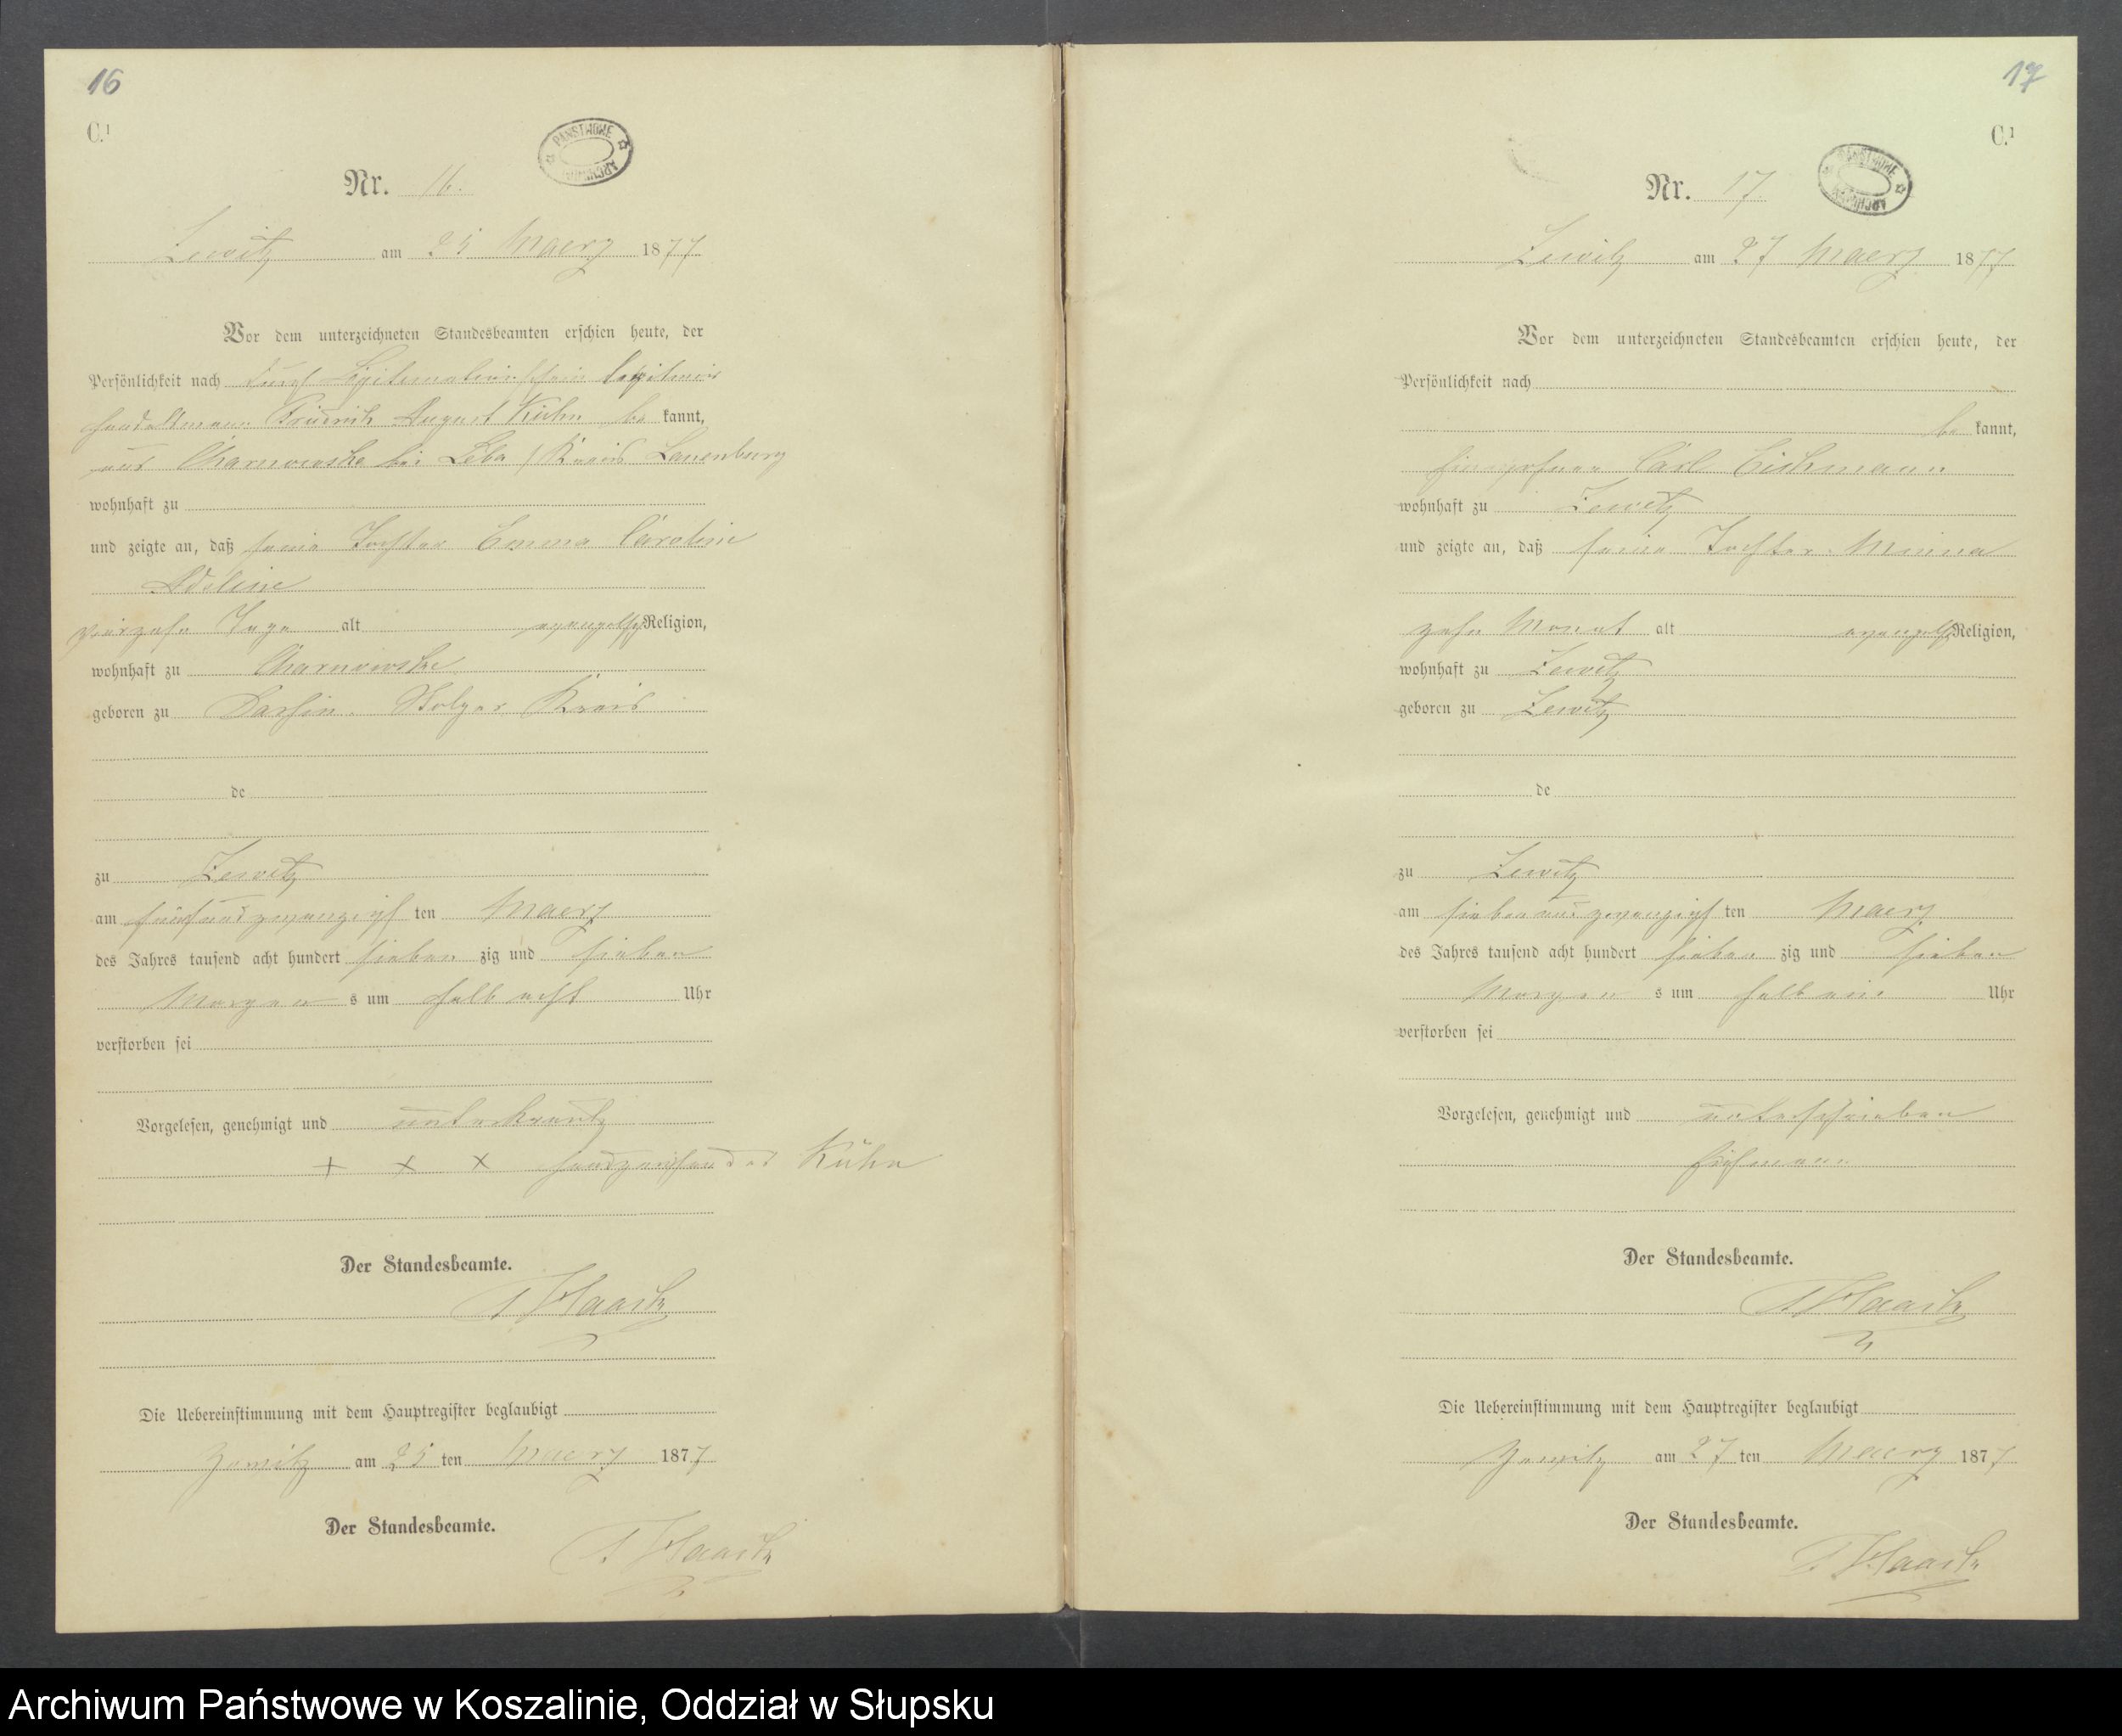 16
C.¹
PAŃSTWOWE ARCHIWUM
Nr. 16.
Zewitz am 25 Maerz 1877
Vor dem unterzeichneten Standesbeamten erschien heute, der
Persönlichkeit nach durch Legitimationsschein legitimirt
Handelsmann Friedrich August Kühn be kannt,
aus Charnowske bei Leba / Kreis Lauenburg
wohnhaft zu
und zeigte an, daß seine Tochter Emma Caroline
Adeline
vierzehn Tage alt evangelsch Religion,
wohnhaft zu Charnowske
geboren zu Stolper Kreis
de
zu Zewitz
am fünfundzwanzigsten Maerz
des Jahres tausend acht hundert sieben zig und sieben
Morgen s um halb acht Uhr
verstorben sei
Vorgelesen, genehmigt und unterkreutz
+ x x Handzeichen des Kühn
Der Standesbeamte.
Haack
Die Uebereinstimmung mit dem Hauptregister beglaubigt
Zewitz am 25 ten Maerz 1877
Der Standesbeamte.
Haack
17
C.¹
PAŃSTWOWE ARCHIWUM
Nr. 17
Zewitz am 27 Maerz 1877
Vor dem unterzeichneten Standesbeamten erschien heute, der
Persönlichkeit nach
be kannt,
Carl Eichmann
wohnhaft zu Zewitz
und zeigte an, daß seine Tochter Minna
zehn Monat alt evangelsch Religion,
wohnhaft zu Zewitz
geboren zu Zewitz
de
zu Zewitz
am siebenundzwanzigsten Maerz
des Jahres tausend acht hundert sieben zig und sieben
Morgen s um halb ein Uhr
verstorben sei
Vorgelesen, genehmigt und unterschrieben
Eichmann
Der Standesbeamte.
Haack
Die Uebereinstimmung mit dem Hauptregister beglaubigt
Zewitz am 27 ten Maerz 1877
Der Standesbeamte.
Haack
Archiwum Państwowe w Koszalinie, Oddział w Słupsku